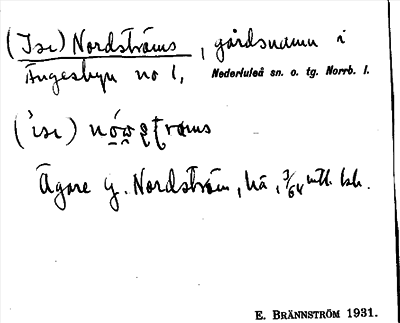 (Isr) Nordströms, gårdsnamn i
Ängesbyn no 1, Nederluleå sn. o. tg. Norrb. l.
Ägare G. Nordström, 3/64 mtl. lsk.
E. BRÄNNSTRÖM 1931.